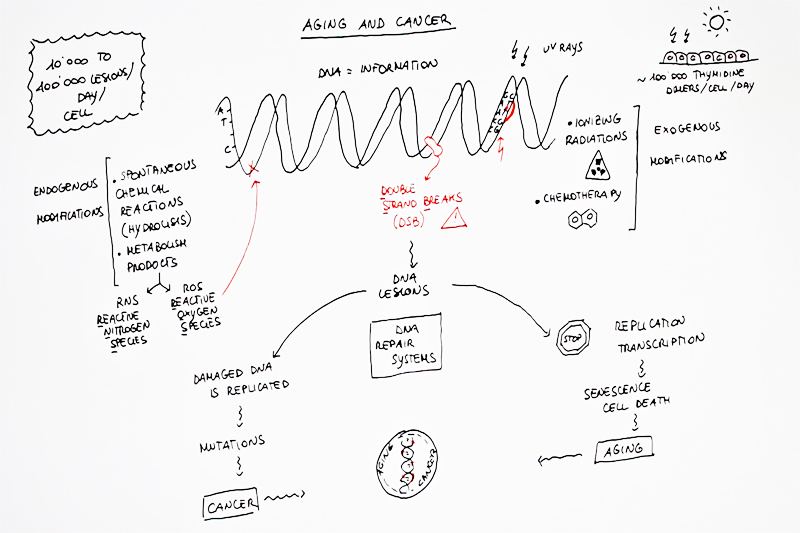 AGING AND CANCER
10'000 TO
100'000 LESIONS/
DAY/
CELL
DNA = INFORMATION
UV RAYS
~ 100'000 THYMIDINE
DIMERS/CELL/DAY
A
T
C
ENDOGENOUS
MODIFICATIONS
• SPONTANEOUS
CHEMICAL
REACTIONS
(HYDROLISIS)
• METABOLISM
PRODUCTS
RNS
REACTIVE
NITROGEN
SPECIES
ROS
REACTIVE
OXYGEN
SPECIES
DOUBLE
STRAND BREAKS
(DSB)
• IONIZING
RADIATIONS
• CHEMOTHERAPY
EXOGENOUS
MODIFICATIONS
DNA
LESIONS
DNA
REPAIR
SYSTEMS
DAMAGED DNA
IS REPLICATED
MUTATIONS
CANCER
STOP
REPLICATION
TRANSCRIPTION
SENESCENCE
CELL DEATH
AGING
AGING
CANCER